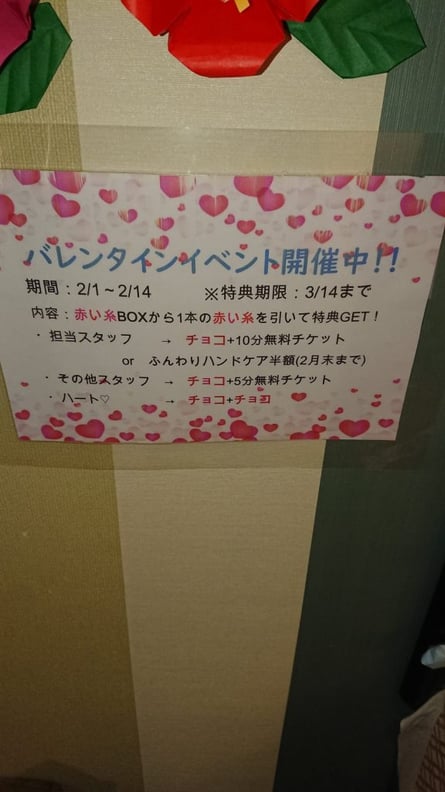 バレンタインイベント開催中!!
期間：2/1～2/14 ※特典期限：3/14まで
内容：赤い糸BOXから1本の赤い糸を引いて特典GET！
・担当スタッフ → チョコ+10分無料チケット
or ふんわりハンドケア半額(2月末まで)
・その他スタッフ → チョコ+5分無料チケット
・ハート♡ → チョコ+チョコ